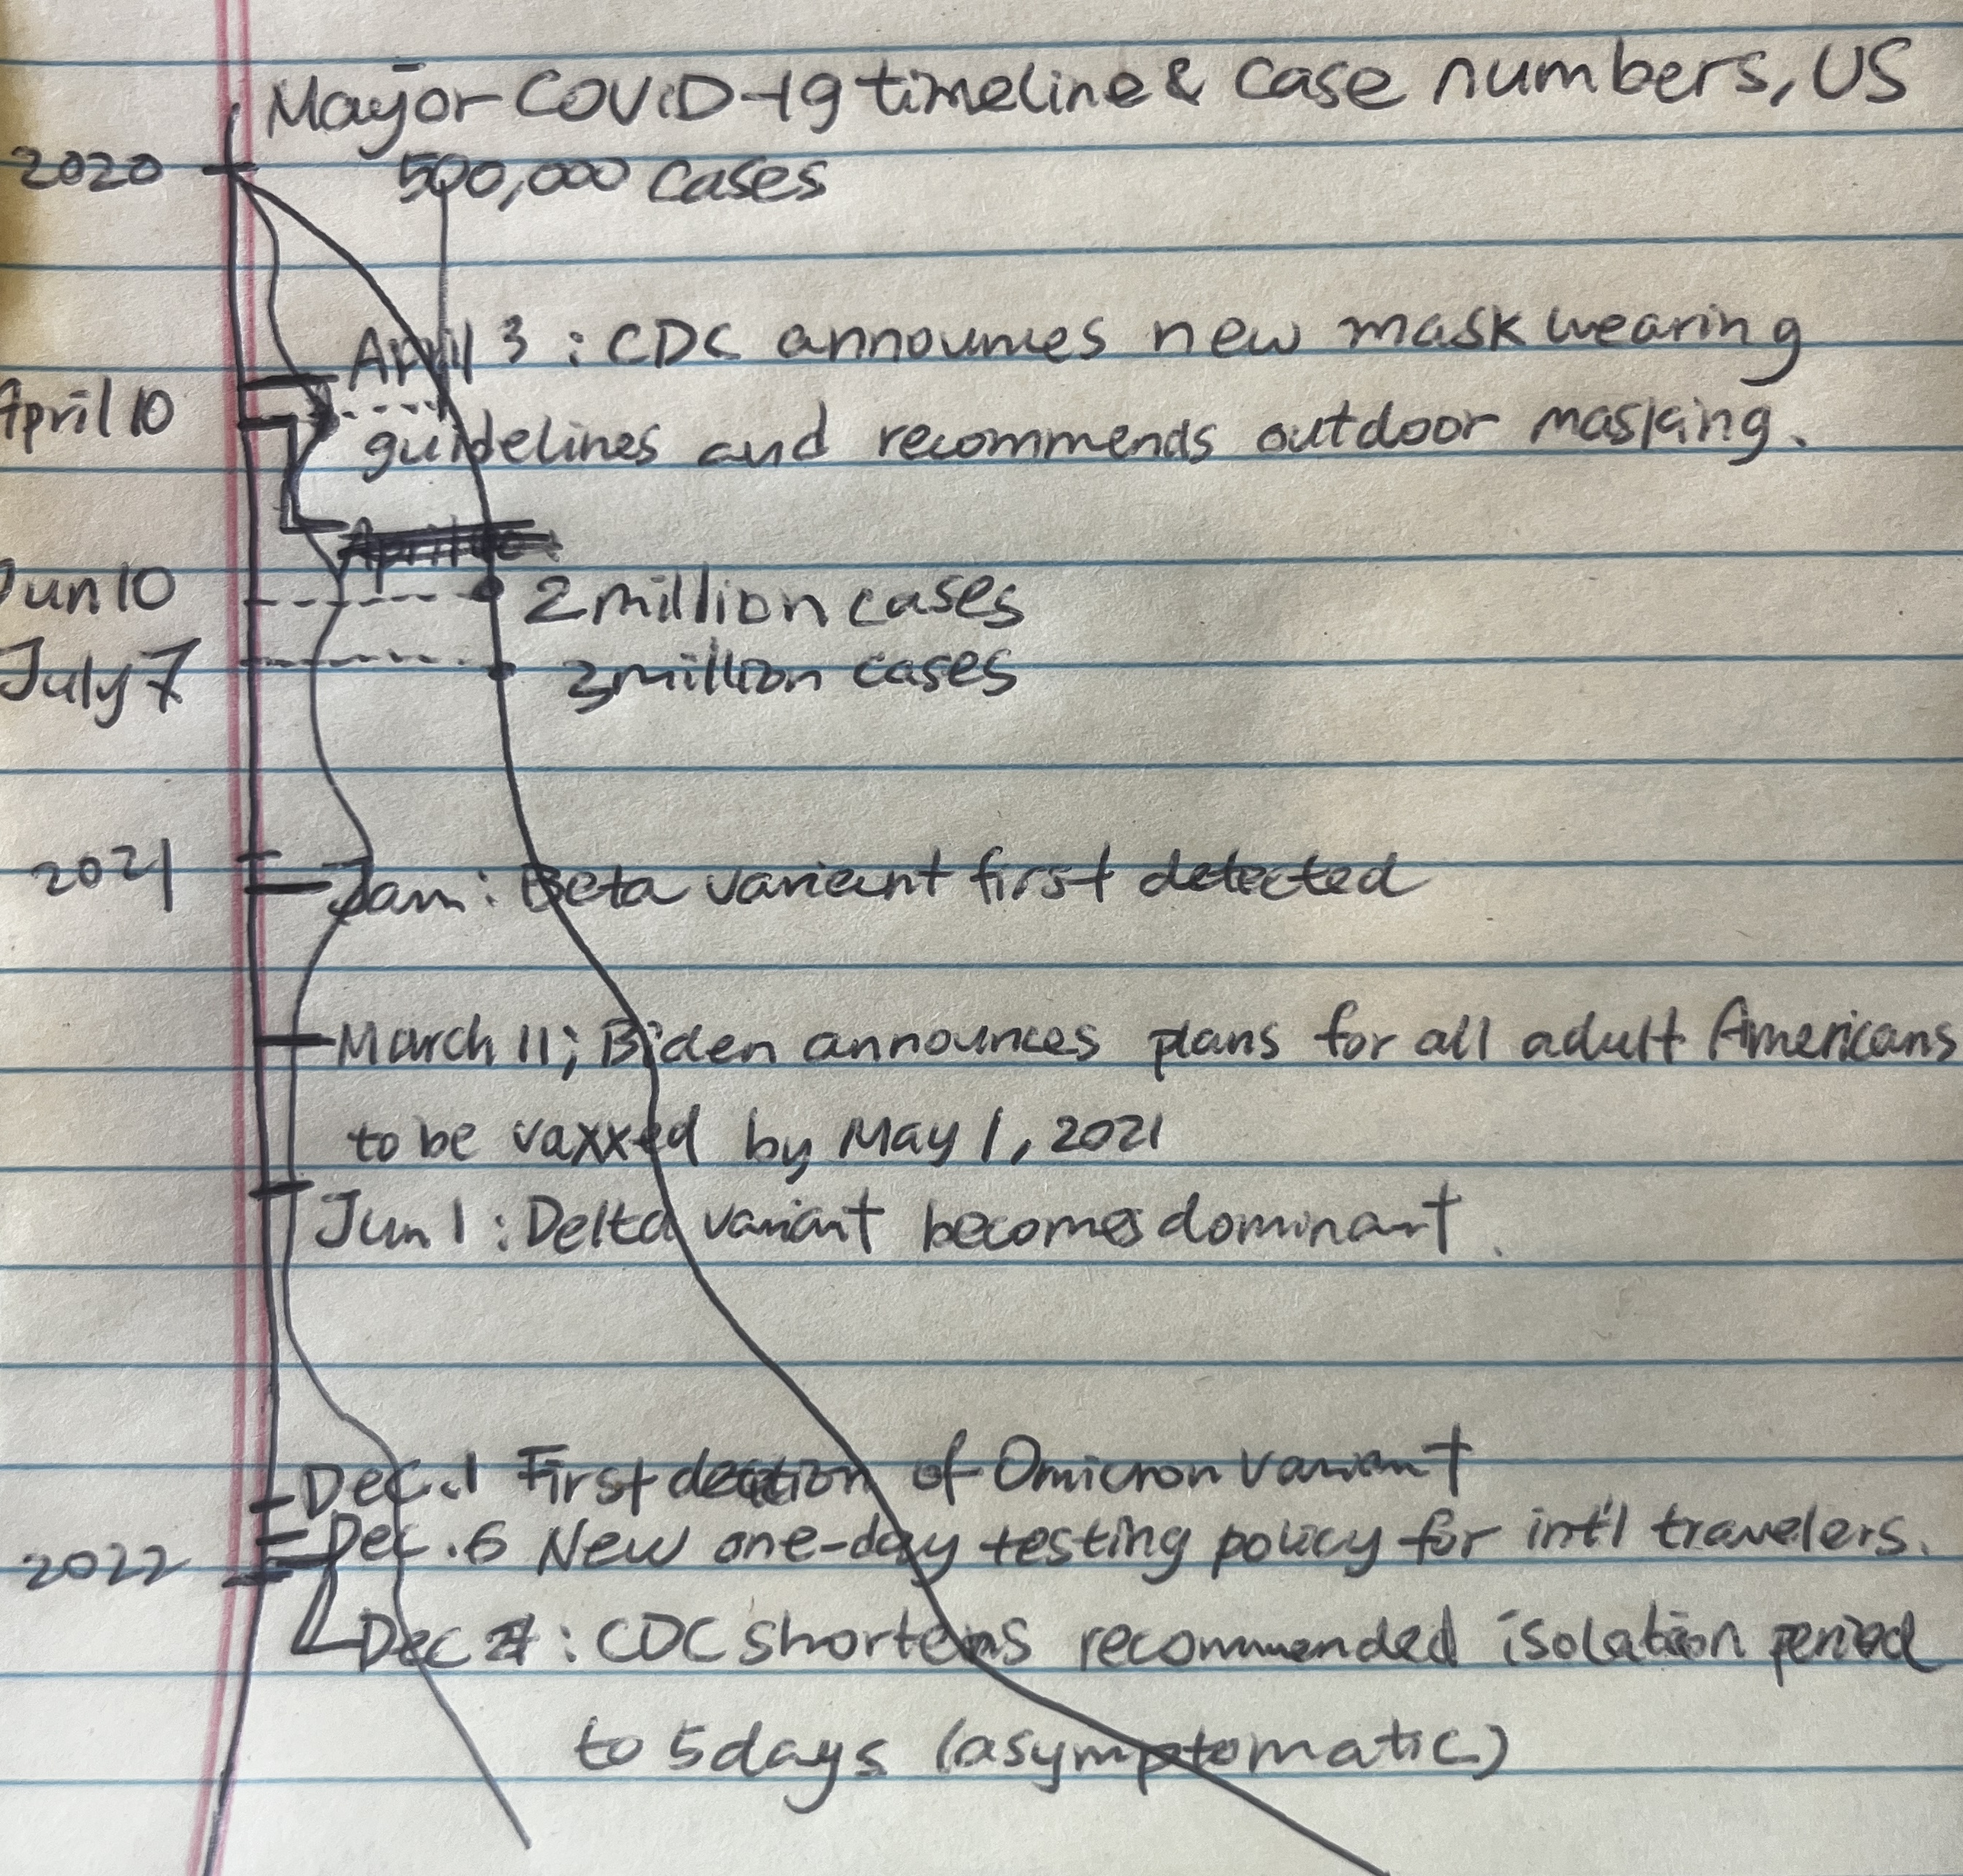 Major COVID-19 timeline & case numbers, US
2020
500,000 cases
April 3 : CDC announces new mask wearing
April 10
guidelines and recommends outdoor masking.
Jun 10
2 million cases
July 7
3 million cases
2021
Jan : Beta variant first detected
March 11; Biden announces plans for all adult Americans
to be vaxxed by May 1, 2021
Jun 1 : Delta variant becomes dominant.
Dec. 1 First dection of Omicron variant
Dec. 6 New one-day testing policy for int'l travelers.
2022
Dec : CDC shortens recommended isolation period
to 5 days (asymptomatic)